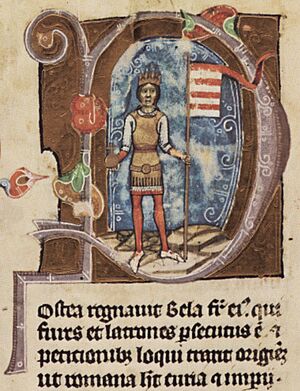 Postea regnauit Bela fr̄ eiꝰ. qui
fures et latrones ꝑsecutus ē. ⁊
peticionibꝫ loqui traxit originē
ut romana hꝫ curia ⁊ imꝑii.